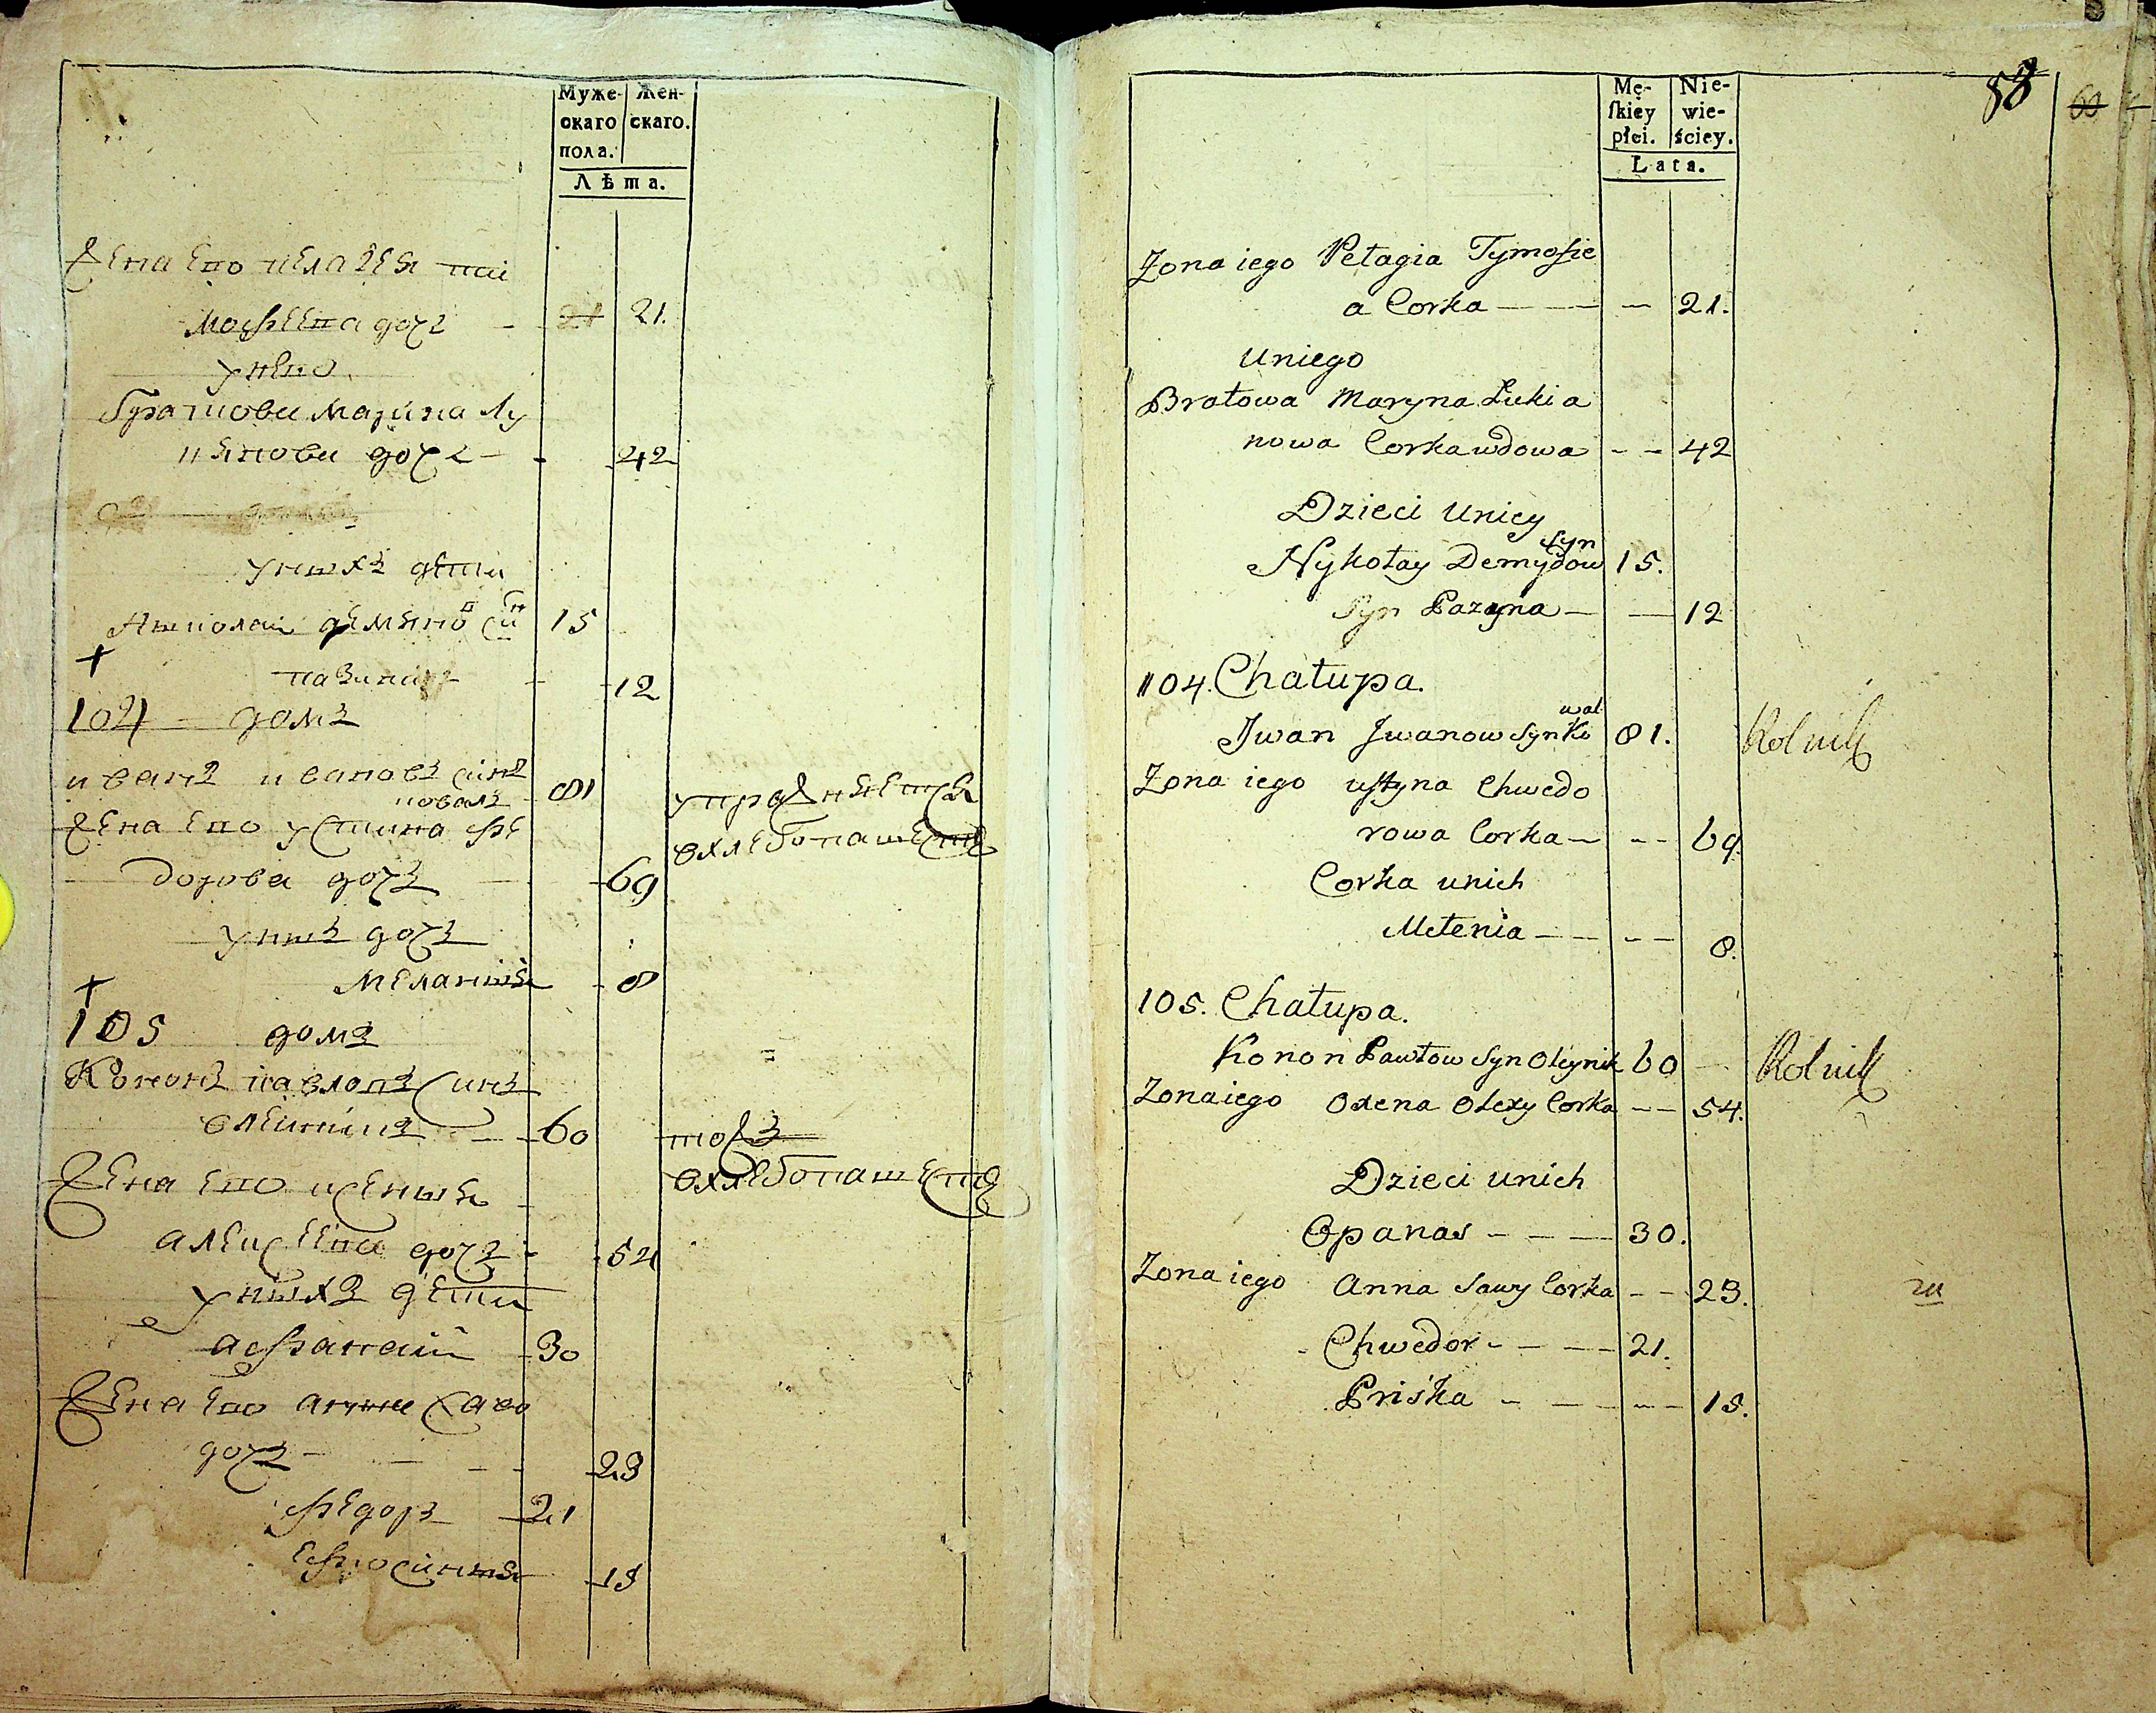 Муже-
скаго
пола.
Жен-
скаго.
Лѣта.
жена его пелагея ти
мофеева дочь - 21 21.
у него
братова марина лу
кянова дочь - - 42
у ихъ дети
Николай демидо въ синъ 15
пазина - 12
104 домъ
иванъ ивановъ синъ
коваль 81 упражняется
жена его устина фе в хлебопашестве
дорова дочь 69
у ихъ дочь
мелания 8
105 домъ
Кононъ павловъ синъ
олейникъ - - 60 тожъ
жена его ксения в хлебопашестве
алексеева дочь - 54
у нихъ дети
афанасий 30
жена его анна саво
дочь - - - 23
федоръ 21
ефросиния 15
58
60
Mę-
skiey
płci.
Nie-
wie-
ściey.
Lata.
Zona iego Pelagia Tymofie
a Corka - - - 21.
uniego
Bratowa Maryna Łukia
nowa Corka wdowa - - 42
Dzieci uniey
syn
Nykołay Demydow 15.
Syn Pazyna - - 12
104. Chałupa.
wal
Iwan Iwanow syn Ko 81. Rolnik
Zona iego ustyna Chwedo
rowa Corka - - - 69.
Corka unich
Melenia - - - - 8.
105. Chałupa.
Konon Pawłow Syn Oleynik 60 - Rolnik
Zona iego Oxena Olexy Corka - - 54.
Dzieci unich
Opanas - - - 30.
Zona iego Anna Sawy Corka - - 23.
Chwedor - - - 21.
Priska - - - - 15.